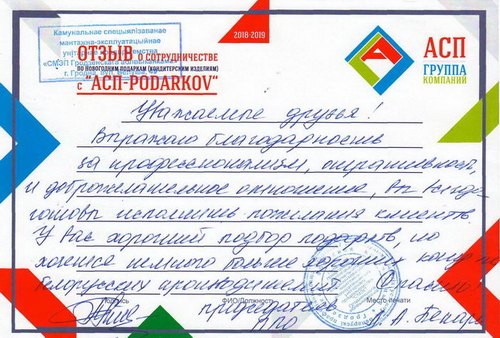 Камунальнае спецыялізаванае
мантажна-эксплуатацыйнае
2018-2019
ОТЗЫВ о сотрудничестве
по новогодним подаркам (кондитерским изделиям)
с "АСП-PODARKOV"
АСП
ГРУППА
КОМПАНИЙ
Уважаемые друзья!
Выражаю благодарность
за профессионализм, оперативность,
и доброжелательное отношение, Вы всегда
готовы исполнить пожелания клиентов.
У Вас хороший подбор подарков, но
хочется немного больше хороших конфет
белорусских производителей. Спасибо!
Подпись
ФИО/Должность
Место печати
председатель
ППО